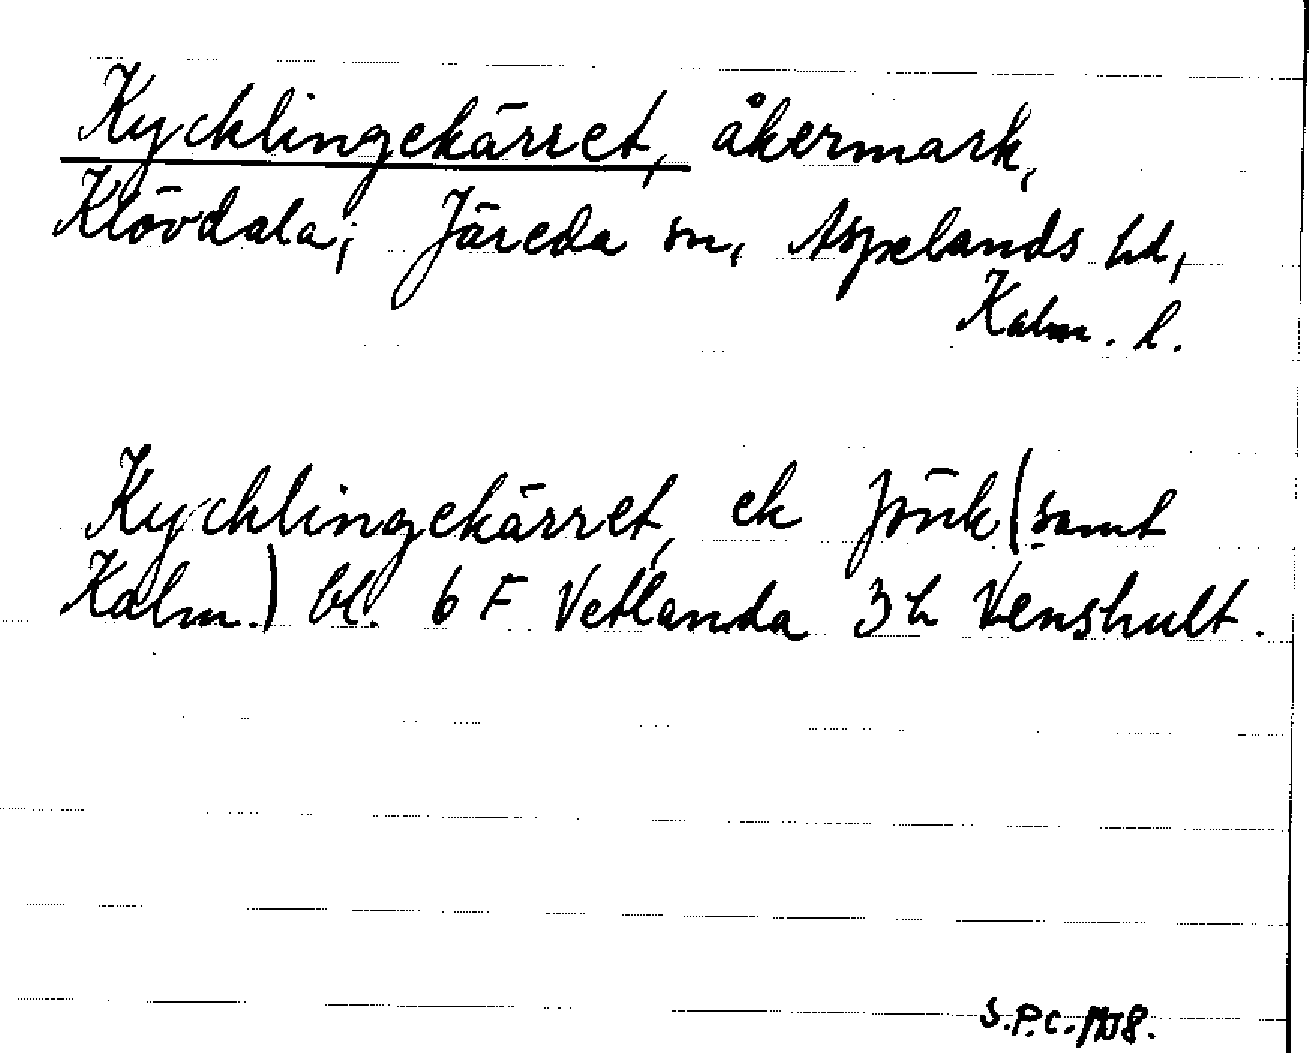 Kycklingekärret, åkermark,
Klövdala, Järeda sn, Aspelands hd,
Kalm. l.
Kycklingekärret, ek Jönk (samt
Kalm.) bl. 6 F Vetlanda 3 h Venshult.
S.P.C.